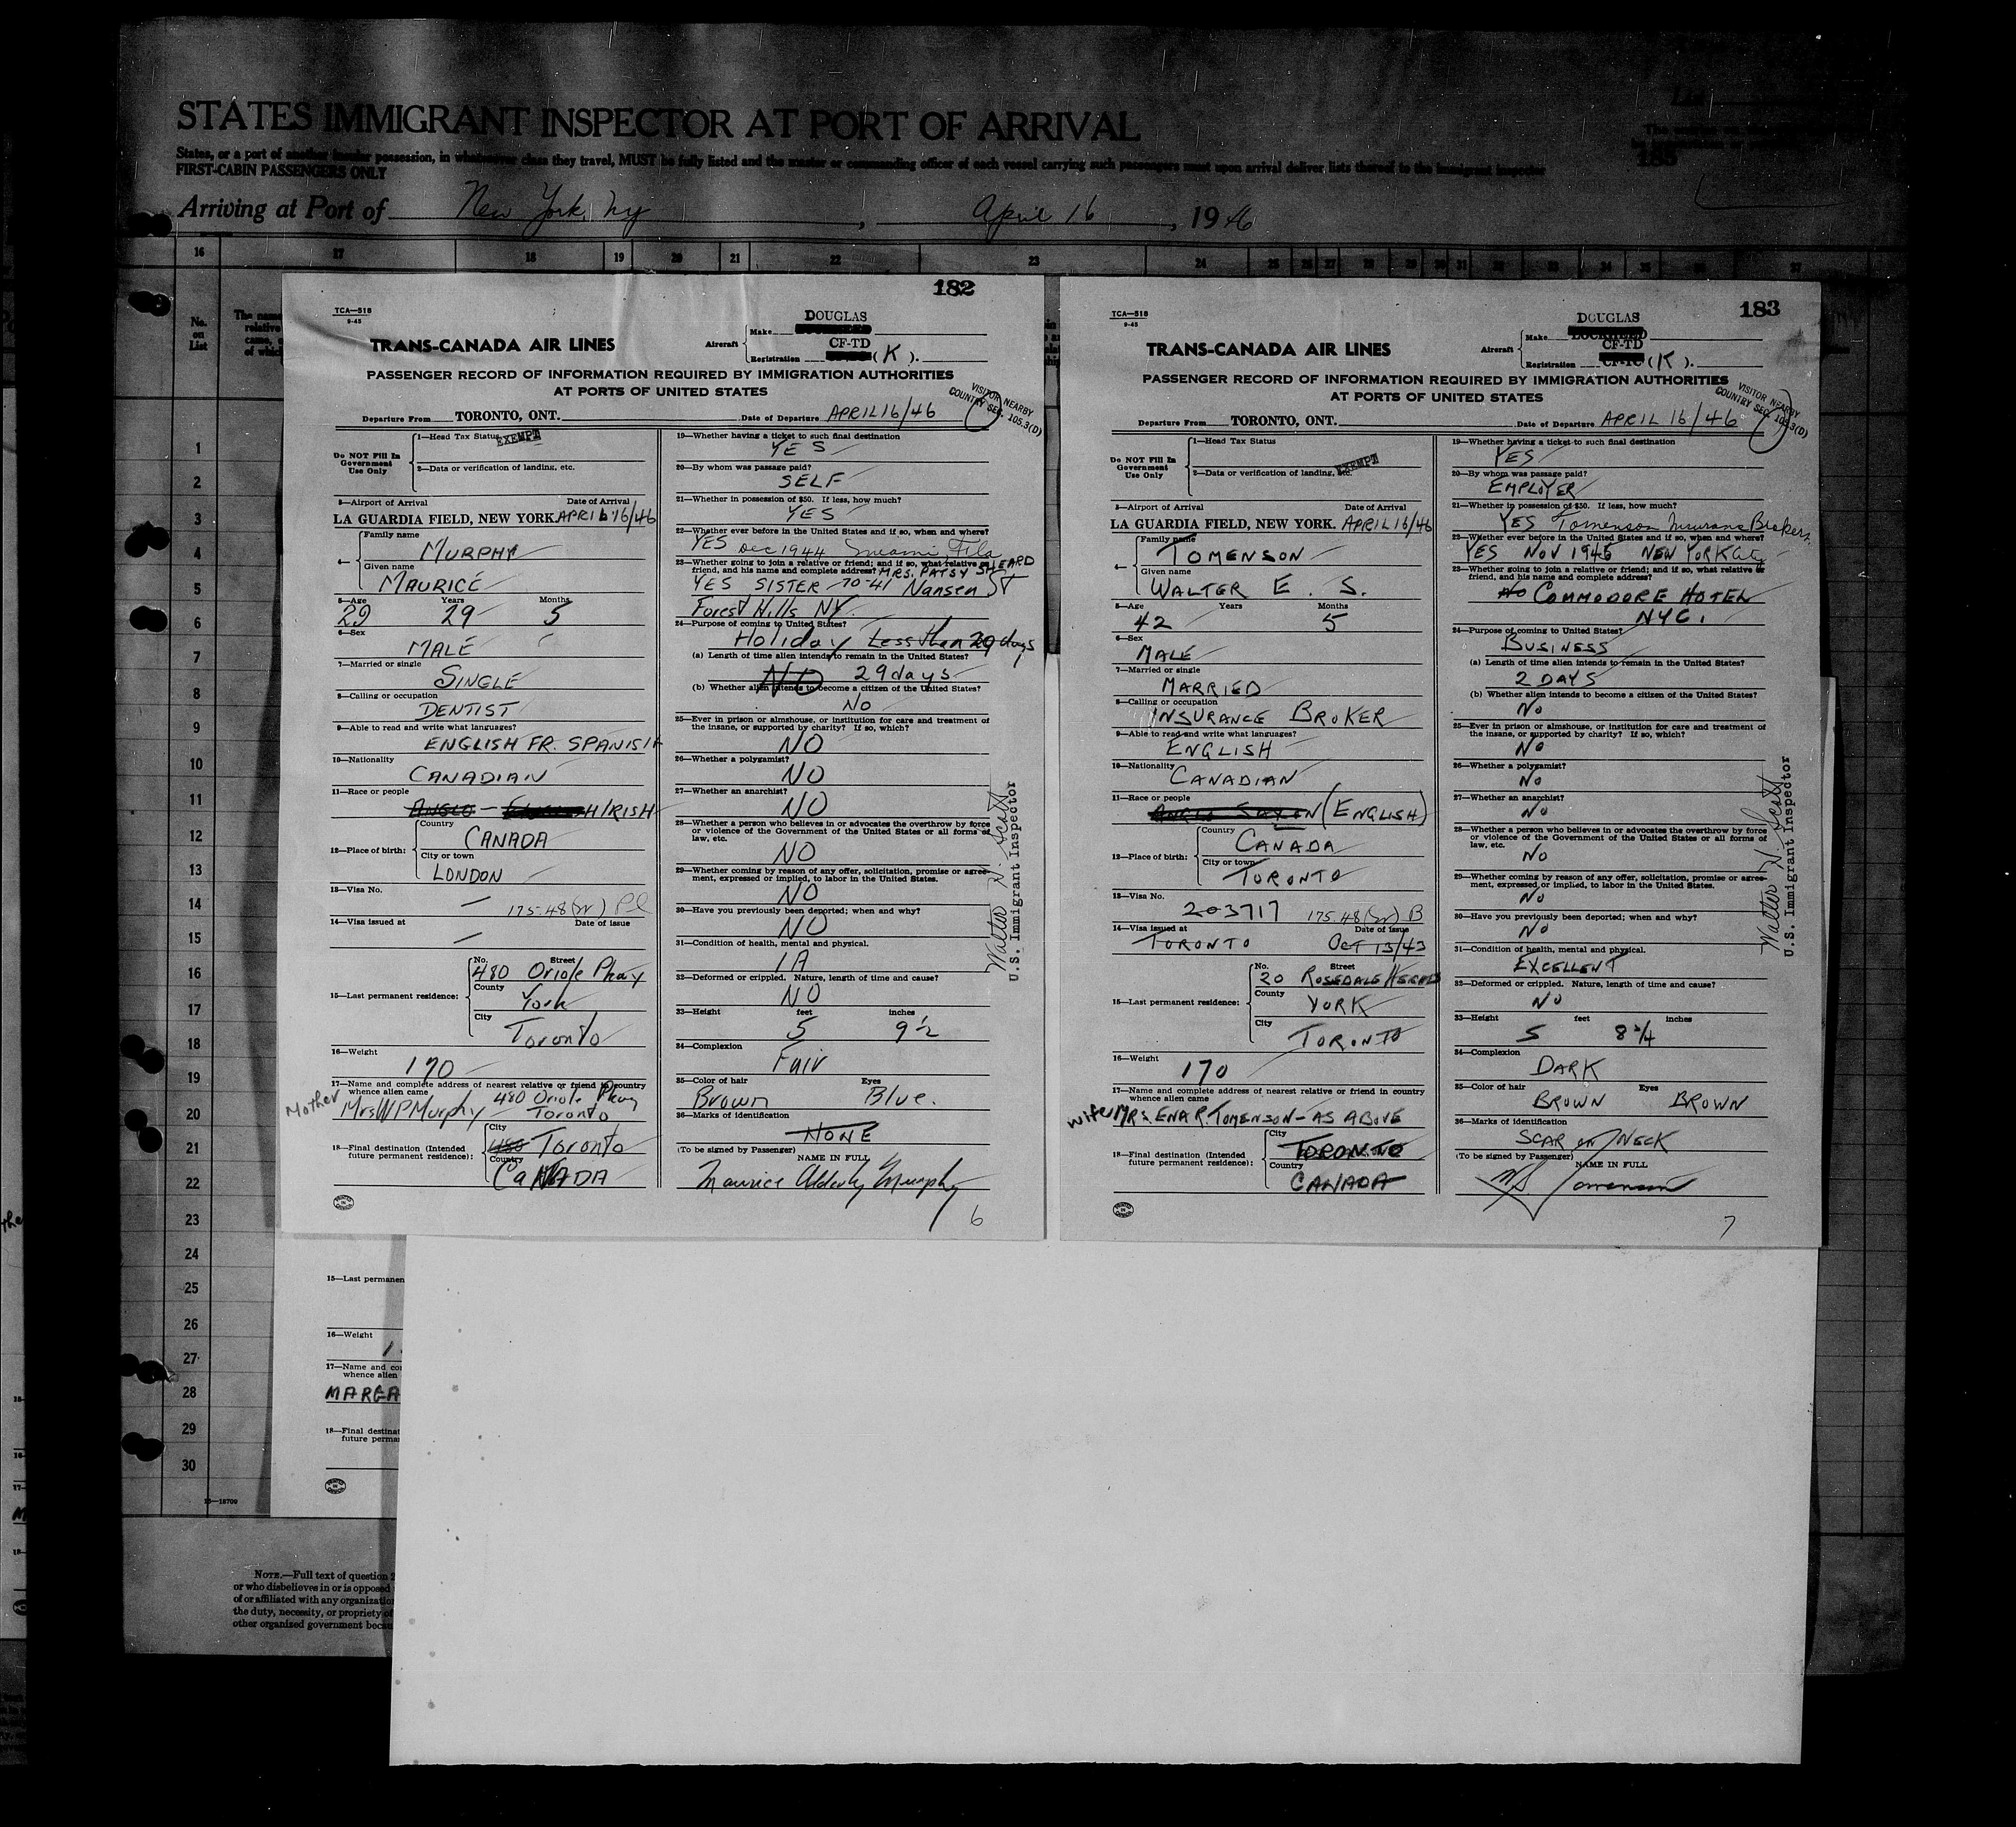 STATES IMMIGRANT INSPECTOR AT PORT OF ARRIVAL
States, or a port of another insular possession, in whatsoever class they travel, MUST be fully listed and the master or commanding officer of each vessel carrying such passengers must upon arrival deliver lists thereof to the immigrant inspector
FIRST-CABIN PASSENGERS ONLY
Arriving at Port of New York, NY , April 16 , 1946
16 17 18 19 20 21 22 23 24 25 26 27 28 29 30 31 32 33 34 35 36 37
No. on List
182
TCA—518
9-45
DOUGLAS
Aircraft
Make
CF-TD
Registration (K).
TRANS-CANADA AIR LINES
PASSENGER RECORD OF INFORMATION REQUIRED BY IMMIGRATION AUTHORITIES
AT PORTS OF UNITED STATES
VISITOR NEARBY
COUNTRY SEC. 105.3(D)
Departure From TORONTO, ONT. Date of Departure APRIL 16/46
Do NOT Fill In Government Use Only
1—Head Tax Status EXEMPT
2—Data or verification of landing, etc.
3—Airport of Arrival Date of Arrival
LA GUARDIA FIELD, NEW YORK. APRIL 16/46
4—
Family name
MURPHY
Given name
MAURICE
5—Age Years Months
29 29 5
6—Sex
MALE
7—Married or single
SINGLE
8—Calling or occupation
DENTIST
9—Able to read and write what languages?
ENGLISH FR. SPANISH
10—Nationality
CANADIAN
11—Race or people
ANGLO — IRISH
12—Place of birth:
Country
CANADA
City or town
LONDON
13—Visa No.
— 175.48(Sr) P-L
14—Visa issued at Date of issue
—
15—Last permanent residence:
No. Street
480 Oriole Pkwy
County
York
City
Toronto
16—Weight
170
17—Name and complete address of nearest relative or friend in country
whence alien came 480 Oriole Pkwy
Mother Mrs W P Murphy Toronto
18—Final destination (Intended
future permanent residence):
City
Toronto
Country
CaNADA
19—Whether having a ticket to such final destination
YES
20—By whom was passage paid?
SELF
21—Whether in possession of $50. If less, how much?
YES
22—Whether ever before in the United States and if so, when and where?
YES Dec 1944 Miami, Fla
23—Whether going to join a relative or friend; and if so, what relative or
friend, and his name and complete address? MRS. PATSY SHEARD
YES SISTER 70-41 Nansen St
Forest Hills NY.
24—Purpose of coming to United States?
Holiday Less than 29 days
(a) Length of time alien intends to remain in the United States?
NO 29 days
(b) Whether alien intends to become a citizen of the United States?
No
25—Ever in prison or almshouse, or institution for care and treatment of
the insane, or supported by charity? If so, which?
NO
26—Whether a polygamist?
NO
27—Whether an anarchist?
NO
28—Whether a person who believes in or advocates the overthrow by force
or violence of the Government of the United States or all forms of
law, etc.
NO
29—Whether coming by reason of any offer, solicitation, promise or agree-
ment, expressed or implied, to labor in the United States.
NO
30—Have you previously been deported; when and why?
NO
31—Condition of health, mental and physical.
1A
32—Deformed or crippled. Nature, length of time and cause?
NO
33—Height feet inches
5 9½
34—Complexion
Fair
35—Color of hair Eyes
Brown Blue.
36—Marks of identification
NONE
(To be signed by Passenger) NAME IN FULL
Maurice Murphy
6
Walter N. Scott
U.S. Immigrant Inspector
183
TCA—518
9-45
DOUGLAS
Aircraft
Make LOCKHEED
CF-TD
Registration CF-TC (K).
TRANS-CANADA AIR LINES
PASSENGER RECORD OF INFORMATION REQUIRED BY IMMIGRATION AUTHORITIES
AT PORTS OF UNITED STATES
VISITOR NEARBY
COUNTRY SEC. 105.3(D)
Departure From TORONTO, ONT. Date of Departure APRIL 16/46
Do NOT Fill In Government Use Only
1—Head Tax Status
2—Data or verification of landing, etc. EXEMPT
3—Airport of Arrival Date of Arrival
LA GUARDIA FIELD, NEW YORK. APRIL 16/46
4—
Family name
TOMENSON
Given name
WALTER E. S.
5—Age Years Months
42 5
6—Sex
MALE
7—Married or single
MARRIED
8—Calling or occupation
INSURANCE BROKER
9—Able to read and write what languages?
ENGLISH
10—Nationality
CANADIAN
11—Race or people
ANGLO SAXON (ENGLISH)
12—Place of birth:
Country
CANADA
City or town
TORONTO
13—Visa No.
203717 175.48(Sr) B
14—Visa issued at Date of issue
TORONTO OCT 13/43
15—Last permanent residence:
No. Street
20 ROSEDALE HEIGHTS
County
YORK
City
TORONTO
16—Weight
170
17—Name and complete address of nearest relative or friend in country
whence alien came
wife MRS. ENA R. TOMENSON — AS ABOVE
18—Final destination (Intended
future permanent residence):
City
TORONTO
Country
CANADA
19—Whether having a ticket to such final destination
YES
20—By whom was passage paid?
EMPLOYER
21—Whether in possession of $50. If less, how much?
YES Tomenson Insurance Brokers.
22—Whether ever before in the United States and if so, when and where?
YES NOV 1945 NEW YORK City
23—Whether going to join a relative or friend; and if so, what relative or
friend, and his name and complete address?
No COMMODORE HOTEL
NYC.
24—Purpose of coming to United States?
BUSINESS
(a) Length of time alien intends to remain in the United States?
2 DAYS
(b) Whether alien intends to become a citizen of the United States?
No
25—Ever in prison or almshouse, or institution for care and treatment of
the insane, or supported by charity? If so, which?
No
26—Whether a polygamist?
No
27—Whether an anarchist?
No
28—Whether a person who believes in or advocates the overthrow by force
or violence of the Government of the United States or all forms of
law, etc.
No
29—Whether coming by reason of any offer, solicitation, promise or agree-
ment, expressed or implied, to labor in the United States.
No
30—Have you previously been deported; when and why?
No
31—Condition of health, mental and physical.
EXCELLENT
32—Deformed or crippled. Nature, length of time and cause?
No
33—Height feet inches
5 8¾
34—Complexion
DARK
35—Color of hair Eyes
BROWN BROWN
36—Marks of identification
SCAR on NECK
(To be signed by Passenger) NAME IN FULL
Tomenson
7
Walter N. Scott
U.S. Immigrant Inspector
1
2
3
4
5
6
7
8
9
10
11
12
13
14
15
16
17
18
19
20
21
22
23
24
25
26
27
28
29
30
15—Last permanen
16—Weight
17—Name and co
whence alien
MARGA
18—Final destinat
future perma
16—18709
NOTE.—Full text of question 2
or who disbelieves in or is opposed
of or affiliated with any organizatio
the duty, necessity, or propriety of
other organized government becau